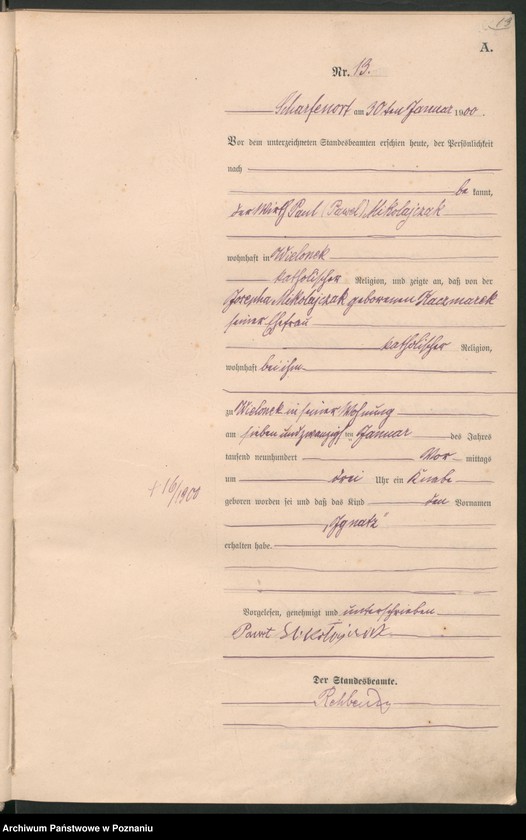 13
A.
Nr. 13.
Scharfenort am 30ten Januar 1900.
Vor dem unterzeichneten Standesbeamten erschien heute, der Persönlichkeit
nach
be kannt,
der Wirth Paul (Pawel) Mikolajczak
wohnhaft in Wielonek
katholischer Religion, und zeigte an, daß von der
Josepha Mikolajczak geborenen Kaczmarek
seiner Ehefrau
katholischer Religion,
wohnhaft bei ihm
zu Wielonek in seiner Wohnung
am sieben und zwanzigsten Januar des Jahres
tausend neunhundert Vor mittags
um drei Uhr ein Knabe
geboren worden sei und daß das Kind den Vornamen
+ 16/1900
„Ignatz“
erhalten habe.
Vorgelesen, genehmigt und unterschrieben
Paweł Mikołajczak
Der Standesbeamte.
Archiwum Państwowe w Poznaniu